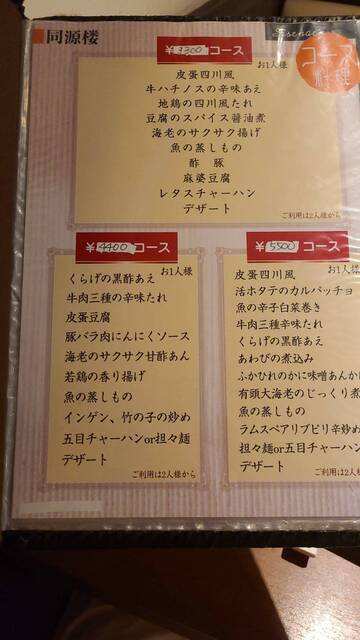 同源楼
コース
料理
¥3300 コース
お1人様
皮蛋四川風
牛ハチノスの辛味あえ
地鶏の四川風たれ
豆腐のスパイス醤油煮
海老のサクサク揚げ
魚の蒸しもの
酢豚
麻婆豆腐
レタスチャーハン
デザート
ご利用は2人様から
¥4400 コース
お1人様
くらげの黒酢あえ
牛肉三種の辛味たれ
皮蛋豆腐
豚バラ肉にんにくソース
海老のサクサク甘酢あん
若鶏の香り揚げ
魚の蒸しもの
インゲン、竹の子の炒め
五目チャーハンor担々麺
デザート
ご利用は2人様から
¥5500 コース
お1人様
皮蛋四川風
活ホタテのカルパッチョ
魚の辛子白菜巻き
牛肉三種辛味たれ
くらげの黒酢あえ
あわびの煮込み
ふかひれのかに味噌あんか
有頭大海老のじっくり煮
魚の蒸しもの
ラムスペアリブピリ辛炒め
担々麺or五目チャーハン
デザート
ご利用は2人様から